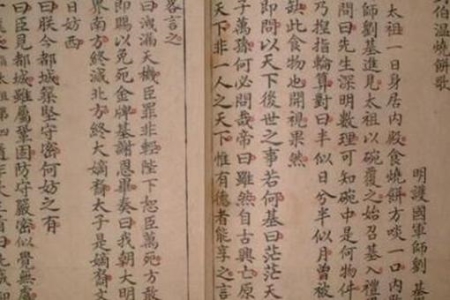 伯温燒餅歌
明護國軍師劉基
太祖一日身居内殿食燒餅方啖一口内
師劉基進見太祖以碗覆之始召基入禮
問曰先生深明數理可知碗中是何物件
乃捏指輪算對曰半似日兮半似月曾被
缺此食物也開視果然
即問以天下後世之事若何基曰茫茫天
子萬孫何必問哉帝曰雖然自古興亡原
天下非一人之天下惟有德者能享之言
畧言之
曰洩漏天機臣罪非輕陛下恕臣萬死方敢
即賜以免死金牌基謝恩畢奏曰我朝大明
界南方終滅北方終大嫡裔太子是嫡裔文
日妨西
曰朕今都城築堅守密何妨之有
曰臣見都城雖屬鞏固防守嚴密似覺無虞